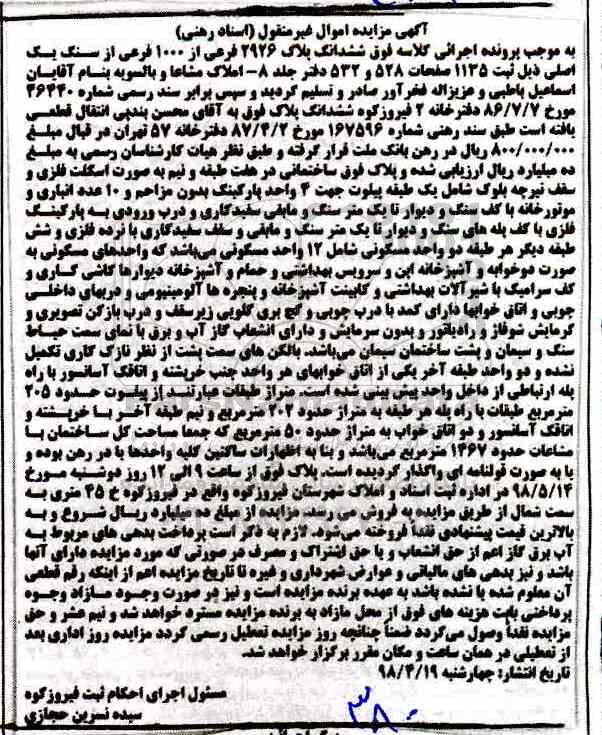 آگهی مزایده اموال غیرمنقول (اسناد رهنی)
به موجب پرونده اجرائی کلاسه فوق ششدانگ پلاک ۲۹۲۶ فرعی از ۱۰۰۰ فرعی از سنگ یک
اصلی ذیل ثبت ۱۱۳۵ صفحات ۵۲۸ و ۵۳۲ دفتر جلد ۸- املاک مشاعا و بالسویه بنام آقایان
اسماعیل باطبی و عزیزاله فخرآور صادر و تسلیم گردید و سپس برابر سند رسمی شماره ۳۶۴۴۰
مورخ ۸۶/۷/۷ دفترخانه ۲ فیروزکوه ششدانگ پلاک فوق به آقای محسن بندپی انتقال قطعی
یافته است طبق سند رهنی شماره ۱۶۷۵۹۶ مورخ ۸۷/۴/۲ دفترخانه ۵۷ تهران در قبال مبلغ
۸۰۰/۰۰۰/۰۰۰ ریال در رهن بانک ملت قرار گرفته و طبق نظر هیات کارشناسان رسمی به مبلغ
ده میلیارد ریال ارزیابی شده و پلاک فوق ساختمانی در هفت طبقه و نیم به صورت اسکلت فلزی و
سقف تیرچه بلوک شامل یک طبقه پیلوت جهت ۴ واحد پارکینگ بدون مزاحم و ۱۰ عدد انباری و
موتورخانه با کف سنگ و دیوار تا یک متر سنگ و مابقی سفیدکاری و درب ورودی به پارکینگ
فلزی با کف پله های سنگ و دیوار تا یک متر سنگ و مابقی و سقف سفیدکاری با نرده فلزی و شش
طبقه دیگر هر طبقه دو واحد مسکونی شامل ۱۲ واحد مسکونی می‌باشد که واحدهای مسکونی به
صورت دوخوابه و آشپزخانه اپن و سرویس بهداشتی و حمام و آشپزخانه دیوارها کاشی کاری و
کف سرامیک با شیرآلات بهداشتی و کابینت آشپزخانه و پنجره ها آلومینیومی و دربهای داخلی
چوبی و اتاق خوابها دارای کمد با درب چوبی و گچ بری گلویی زیرسقف و درب بازکن تصویری و
گرمایش شوفاژ و رادیاتور و بدون سرمایش و دارای انشعاب گاز آب و برق با نمای سمت حیاط
سنگ و سیمان و پشت ساختمان سیمان می‌باشد. بالکن های سمت پشت از نظر نازک کاری تکمیل
نشده و دو واحد طبقه آخر یکی از اتاق خوابهای هر واحد جنب خرپشته و اتاقک آسانسور با راه
پله ارتباطی از داخل واحد پیش بینی شده است. متراژ طبقات عبارتند از پیلوت حدود ۲۰۵
مترمربع طبقات با راه پله هر طبقه به متراژ حدود ۲۰۲ مترمربع و نیم طبقه آخر با خرپشته و
اتاقک آسانسور و دو اتاق خواب به متراژ حدود ۵۰ مترمربع که جمعا مساحت کل ساختمان با
مشاعات حدود ۱۴۶۷ مترمربع می‌باشد و بنا به اظهارات ساکنین کلیه واحدها یا در رهن بوده و
یا به صورت قولنامه ای واگذار گردیده است. پلاک فوق از ساعت ۹ الی ۱۲ روز دوشنبه مورخ
۹۸/۵/۱۴ در اداره ثبت اسناد و املاک شهرستان فیروزکوه واقع در فیروزکوه خ ۴۵ متری به
سمت شمال از طریق مزایده به فروش می رسد. مزایده از مبلغ ده میلیارد ریسال شروع و به
بالاترین قیمت پیشنهادی نقداً فروخته می‌شود. لازم به ذکر است پرداخت بدهی های مربوط به
آب برق گاز اعم از حق انشعاب و یا حق اشتراک و مصرف در صورتی که مورد مزایده دارای آنها
باشد و نیز بدهی های مالیاتی و عوارض شهرداری و غیره تا تاریخ مزایده اعم از اینکه رقم قطعی
آن معلوم شده یا نشده باشد به عهده برنده مزایده است و نیز در صورت وجود مازاد وجوه
پرداختی بابت هزینه های فوق از محل مازاد به برنده مزایده مسترد خواهد شد و نیم عشر و حق
مزایده نقداً وصول می‌گردد ضمناً چنانچه روز مزایده تعطیل رسمی گردد مزایده روز اداری بعد
از تعطیلی در همان ساعت و مکان مقرر برگزار خواهد شد.
تاریخ انتشار: چهارشنبه ۹۸/۴/۱۹
مسئول اجرای احکام ثبت فیروزکوه
سیده نسرین حجازی
۳۸۰